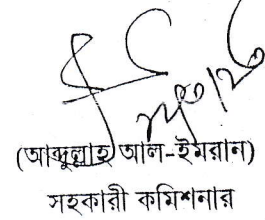 (আব্দুল্লাহ আল-ইমরান)
সহকারী কমিশনার